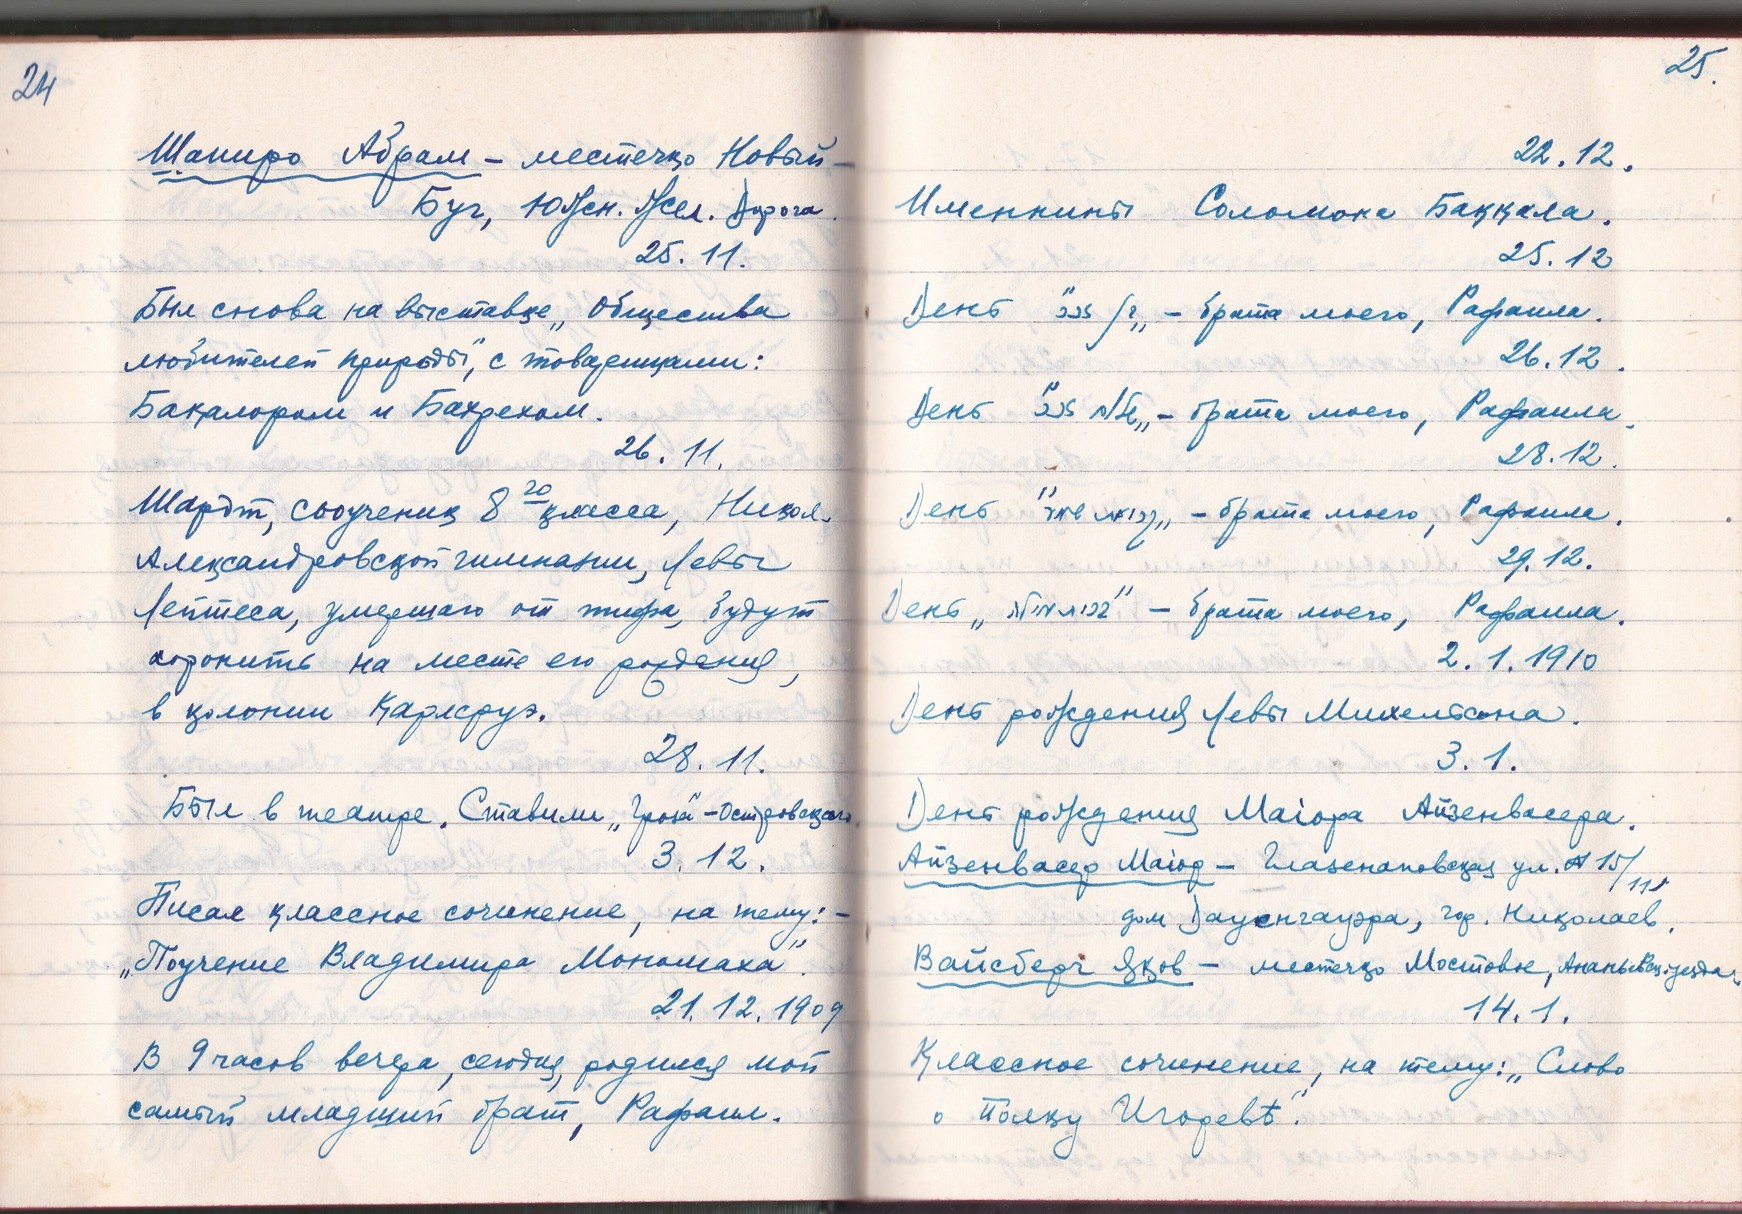 24
Шапиро Абрам – местечко Новый-
Буг, Южн. Жел. Дорога.
25. 11.
Был снова на выставке „Общества
любителей природы", с товарищами:
Бакалором и Бахрехом.
26. 11.
соученик 8го класса, Никол.
Александровской гимназии, Левы
Лейтеса, умершаго от тифа, будут
хоронить на месте его рождения,
в колонии Карлсруэ.
28. 11.
Был в театре. Ставили „Гроза" – Островскаго.
3. 12.
Писал классное сочинение, на тему: –
„Поучение Владимира Мономаха".
21. 12. 1909
В 9 часов вечера, сегодня, родился мой
самый младший брат, Рафаил.
25.
22. 12.
Именины Соломона Баккала.
25. 12
День – брата моего, Рафаила.
26. 12.
День – брата моего, Рафаила.
28. 12.
День – брата моего, Рафаила.
29. 12.
День – брата моего, Рафаила.
2. 1. 1910
День рождения Левы Михельсона.
3. 1.
День рождения Маiора Айзенвасера.
Айзенвасер Маiор – Глазенаповская ул. 15/11
дом Дауенгауэра, гор. Николаев.
Вайсберг Яков – местечко Мостовое, уезда.
14. 1.
Классное сочинение, на тему: „Слово
о Полку Игоревѣ".